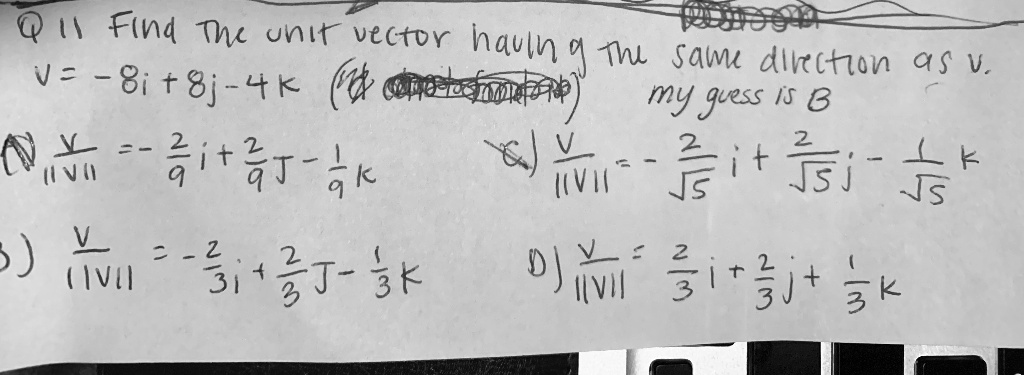 Q 11 Find The unit vector having The same direction as v.
V = -8i + 8j - 4K
my guess is B
A) V/||V|| = - 2/9 i + 2/9 J - 1/9 K
C) V/||V|| = - 2/√5 i + 2/√5 j - 1/√5 K
B) V/||V|| = - 2/3 i + 2/3 J - 1/3 K
D) V/||V|| = 2/3 i + 2/3 j + 1/3 K